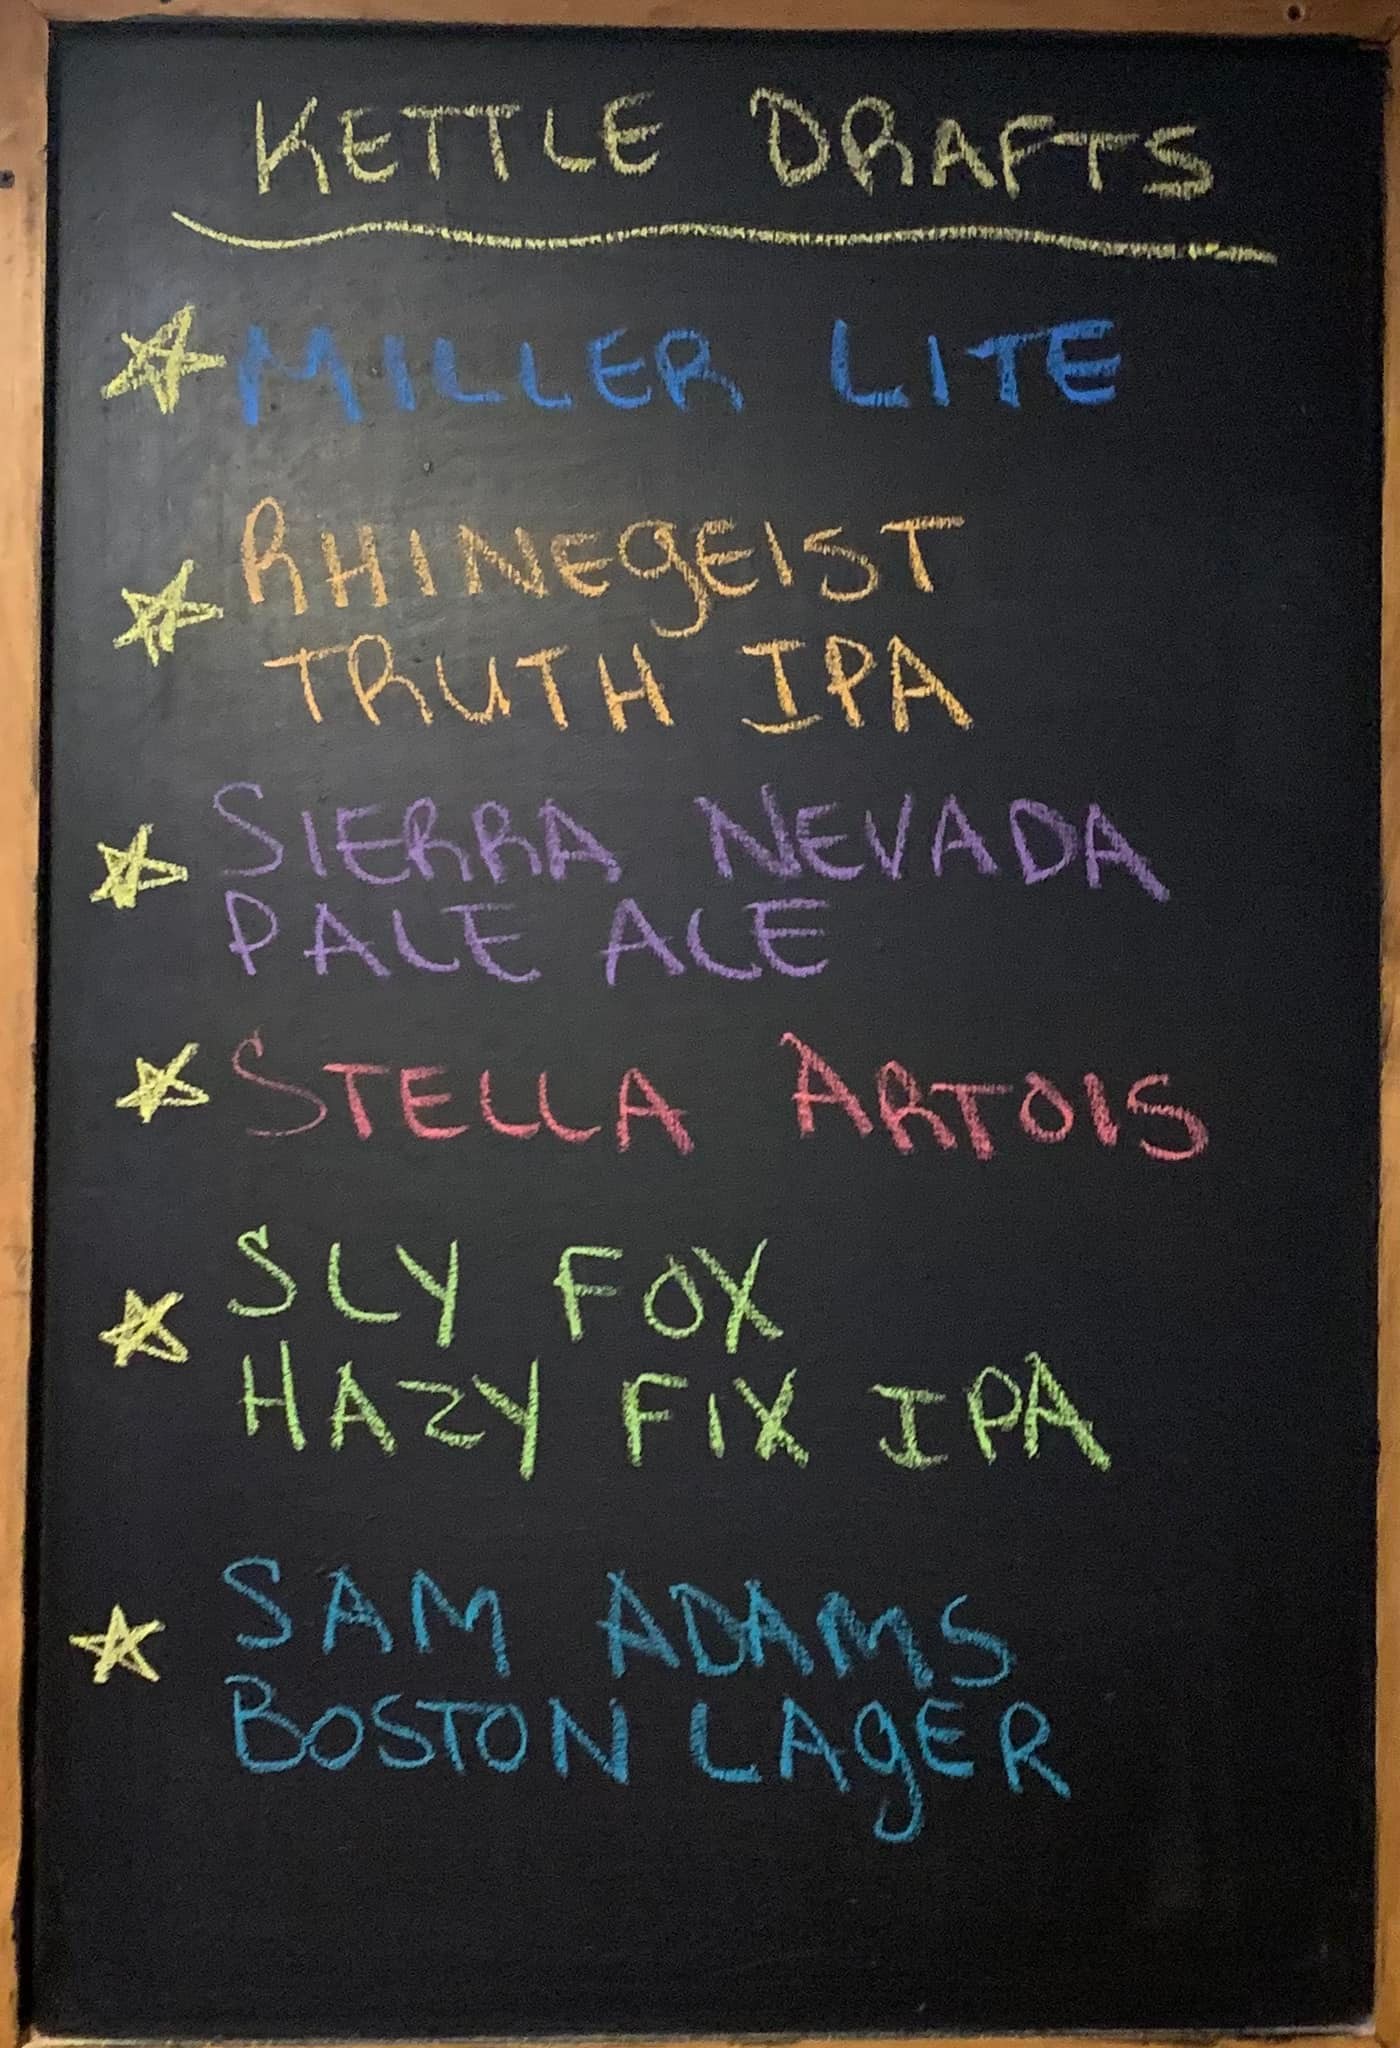 KETTLE DRAFTS
MILLER LITE
RHINEgEIST
TRUTH IPA
SIERRA NEVADA
PALE ALE
STELLA ARTOIS
SLY FOX
HAZY FIX IPA
SAM ADAMS
BOSTON LAgER